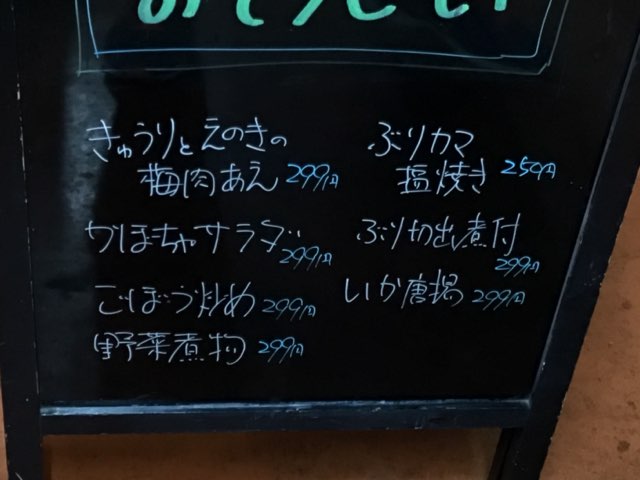 きゅうりとえのきの
梅肉あえ 299円
かぼちゃサラダ
299円
ごぼう炒め 299円
野菜煮物 299円
ぶりカマ
塩焼き 259円
ぶり切出し煮付
299円
いか唐揚 299円